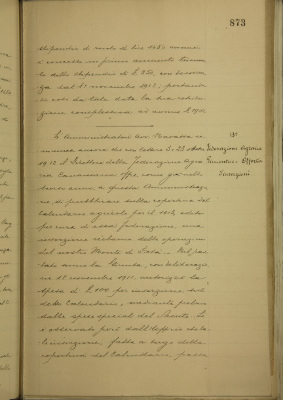 873
stipendio di ruolo di lire 1950 annue
e concesso un primo aumento trienna
le dello stipendio di L. 250, con decorren
za dal 1° novembre 1912, portando
si così da tale data la sua retribu
zione complessiva ad annue L.
L'Amministratore Avv.
munica ancora che con lettera 3.23
1912 il Direttore della Federazione Agra
ria Canavesana offre come già nello
scorso anno, a questa Amministrazio
ne di pubblicare sulla copertina del
Calendario agricolo per il 1913, edito
per cura di essa Federazione, una
inserzione richiamo delle operazioni
del nostro Monte di Pietà. Nel pas
sato anno la Giunta, con deliberazio
ne 18 novembre 1911, autorizzò la
spesa di L. per inserzione sul
detto Calendario, mediante prelevo
dalle spese speciali del Monte. Si
è osservato però dall'Ufficio che ta
le inserzione, fatta a tergo della
copertina del Calendario, passa
Federazione Agraria
Inserzioni